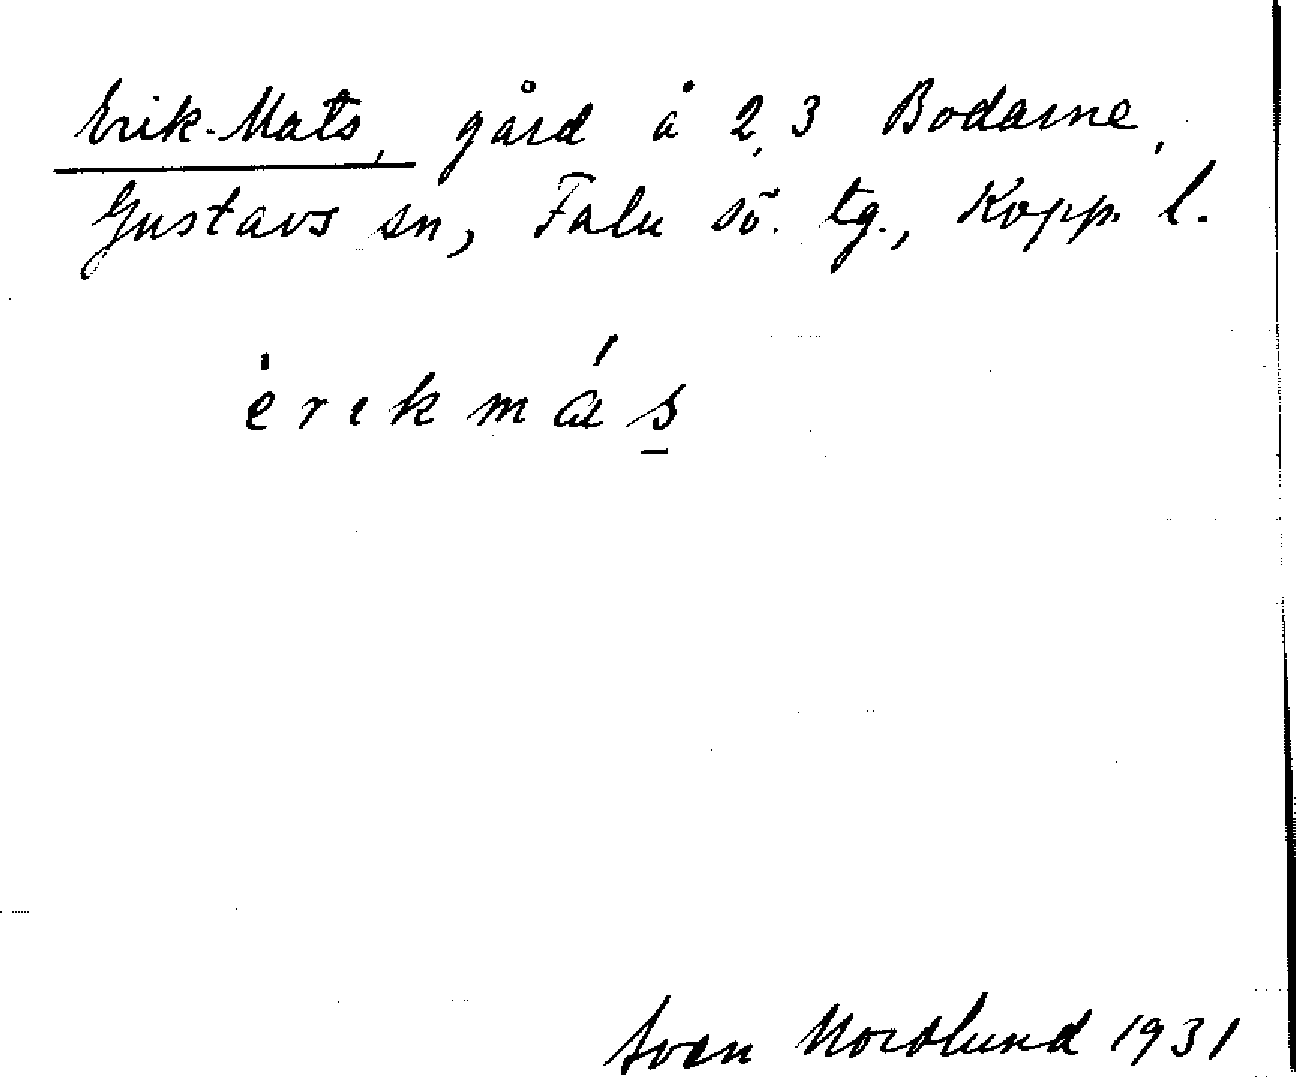 Erik-Mats, gård å 2,3 Bodarne,
Gustavs sn, Falu sö. tg., Kopp. l.
èrɩkmás̲
Sven Nordlund 1931